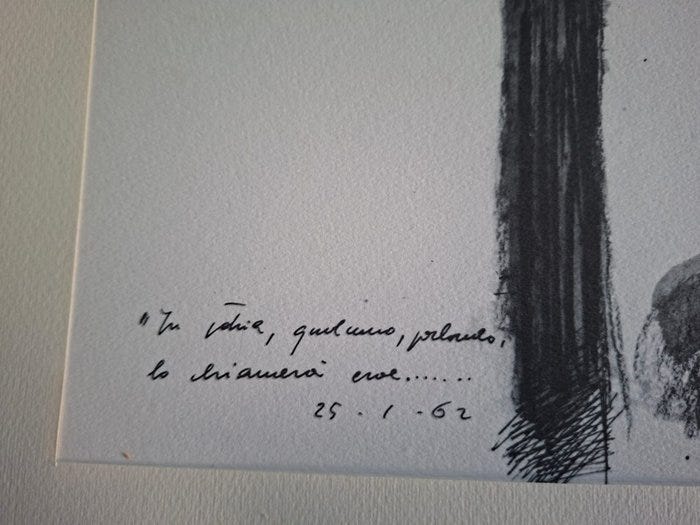 "In patria, qualcuno, parlando,
lo chiamerà eroe.......
25 - 1 - 62